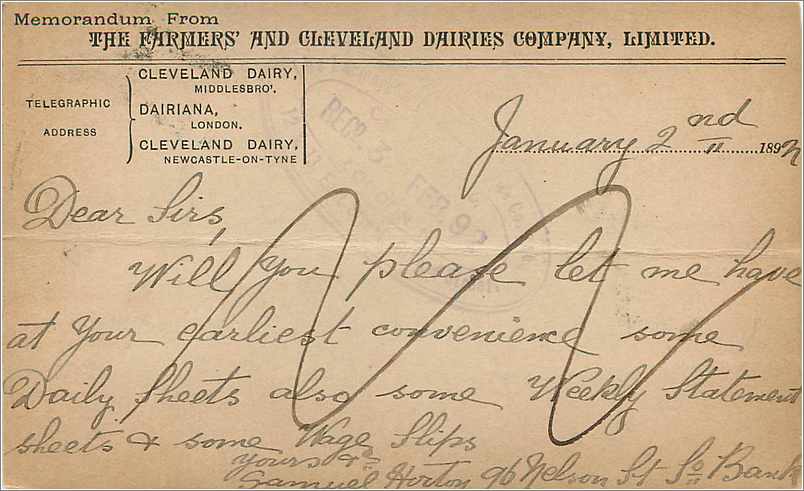 Memorandum From
THE FARMERS' AND CLEVELAND DAIRIES COMPANY, LIMITED.
TELEGRAPHIC ADDRESS
CLEVELAND DAIRY,
MIDDLESBRO'.
DAIRIANA,
LONDON.
CLEVELAND DAIRY,
NEWCASTLE-ON-TYNE
RECD. 3 FEB. 92
January 2nd 1892
Dear Sirs,
Will you please let me have
at your earliest convenience some
Daily Sheets also some Weekly Statement
sheets & some Wage Slips
yours &c
Samuel Horton 96 Nelson St So Bank